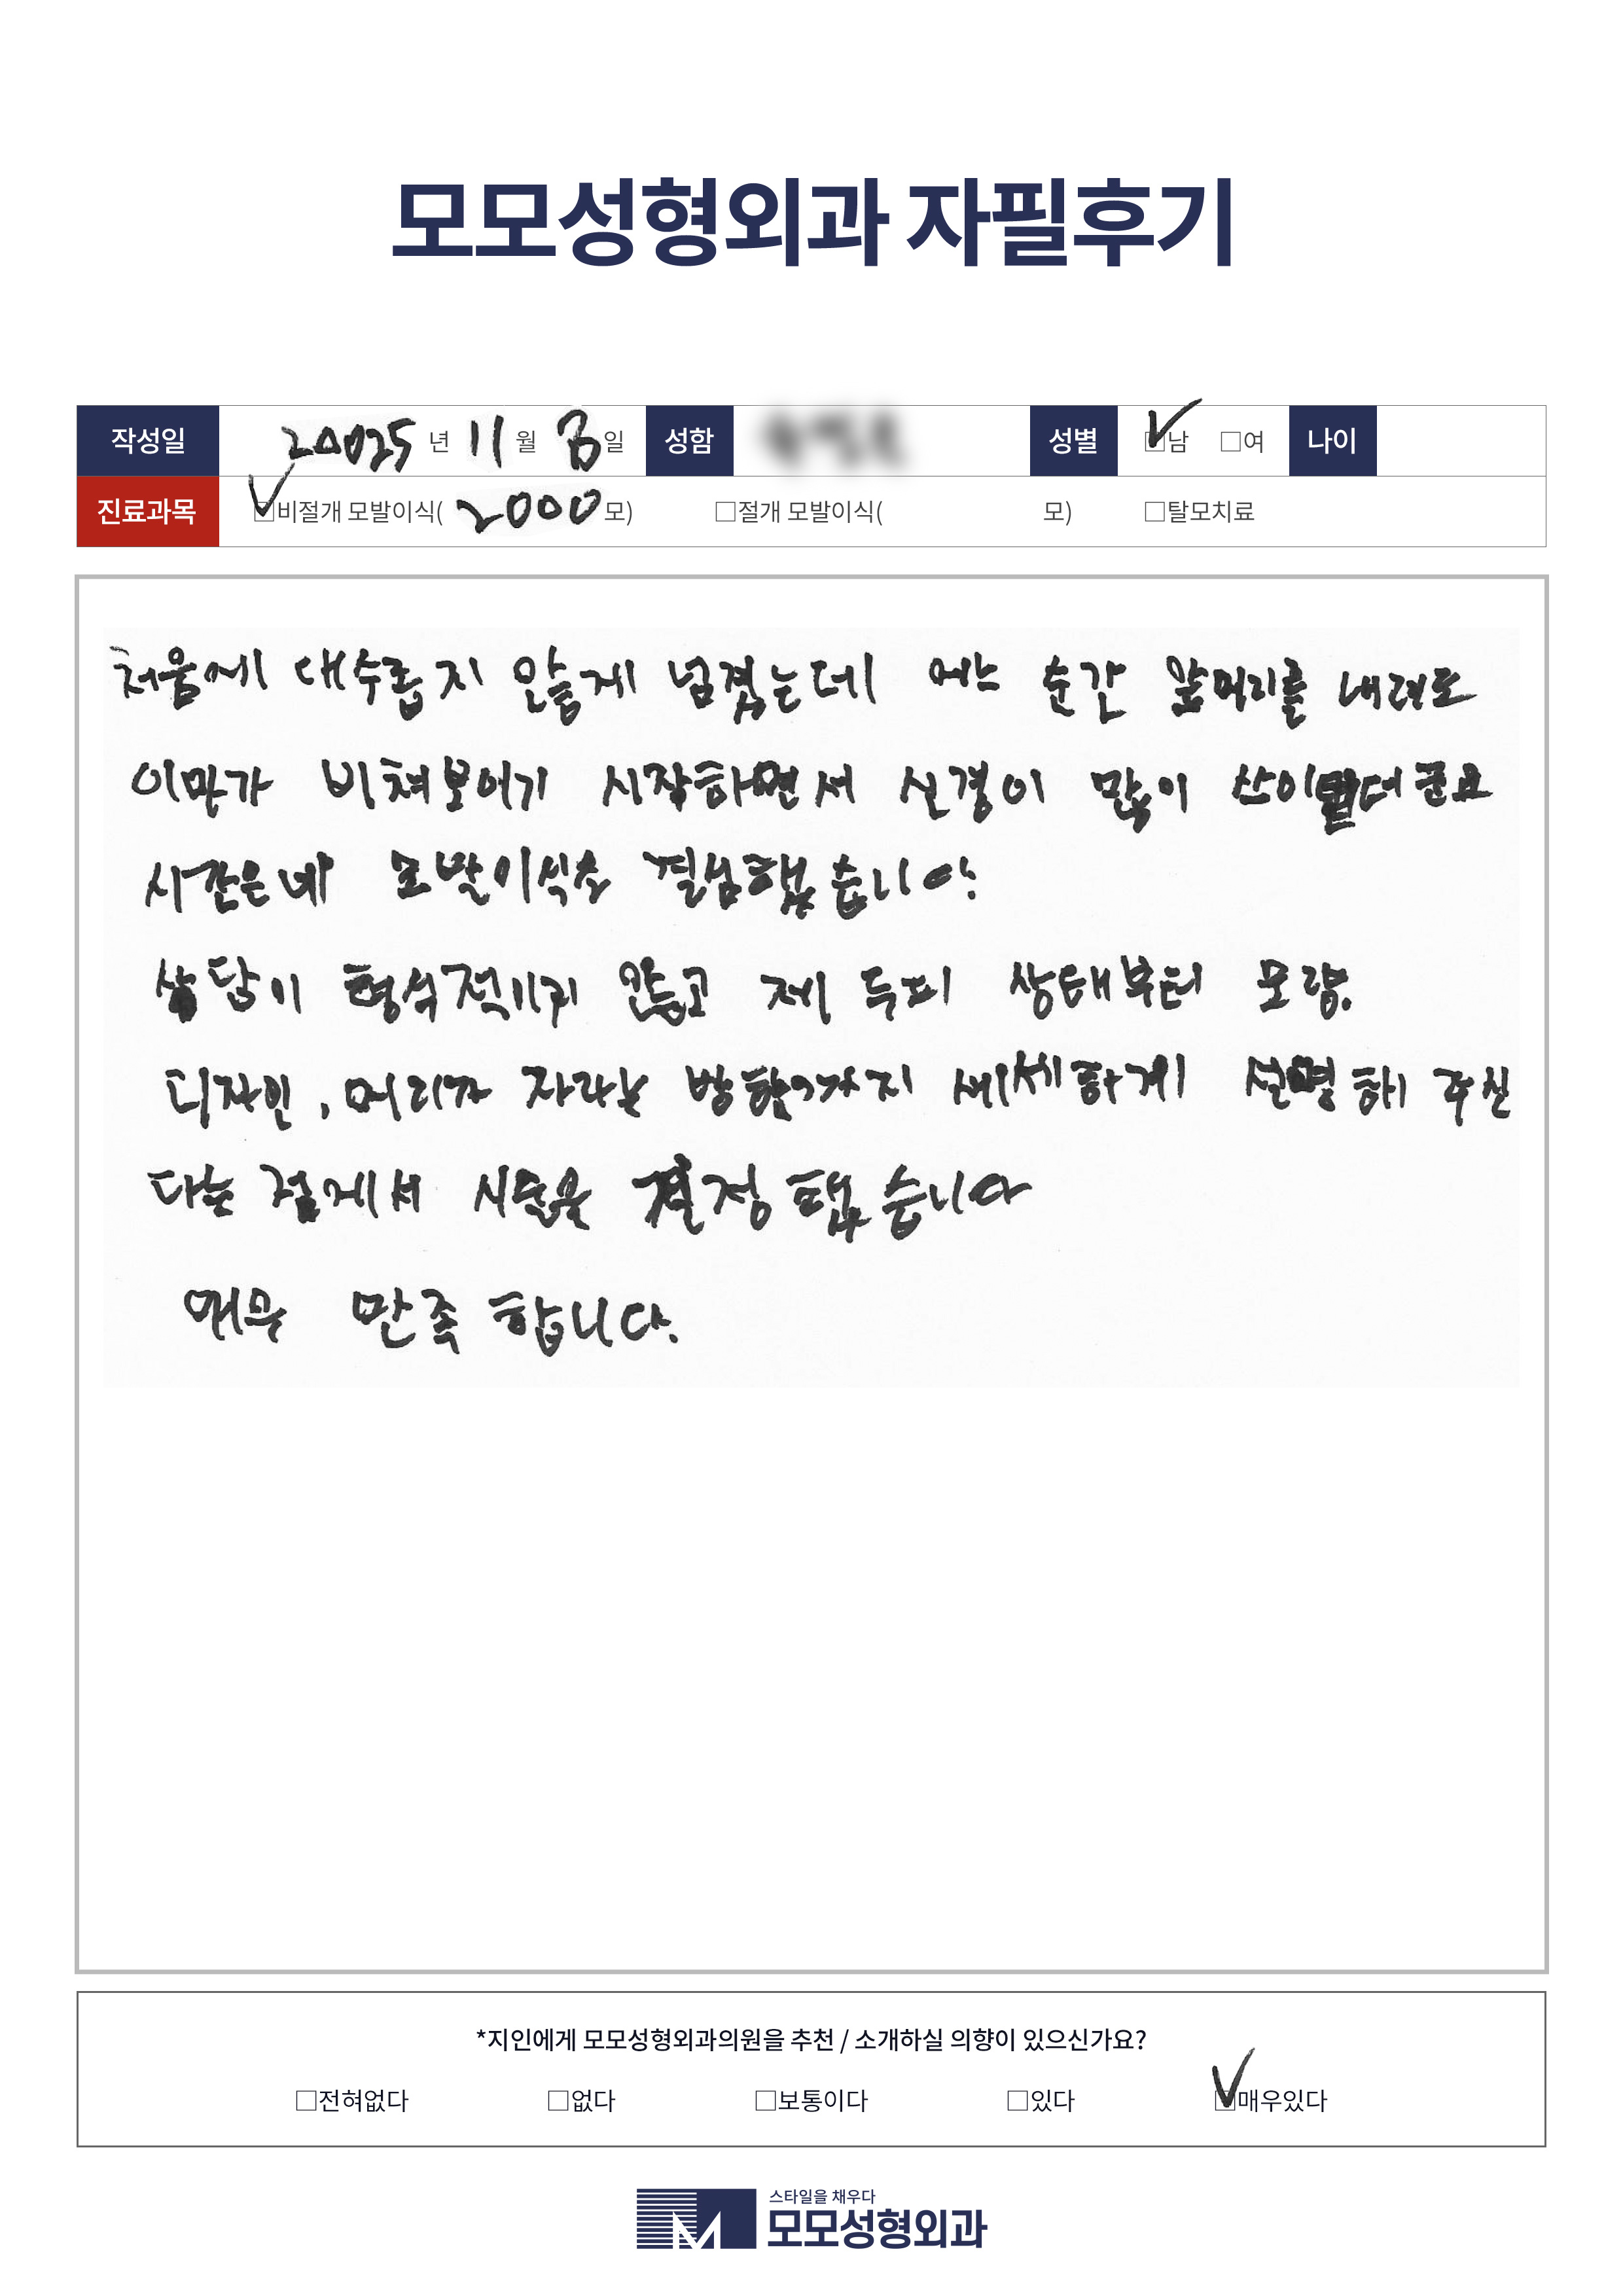 모모성형외과 자필후기
작성일 20025 년 11 월 일 성함 성별 ☑남 □여 나이
진료과목 ☑비절개 모발이식( 2000 모) □절개 모발이식( 모) □탈모치료
처음에 대수롭지 않게 넘겼는데 어느 순간 앞머리를 내려도
이마가 비쳐보이기 시작하면서 신경이 많이 쓰이더군요
모발이식을 결심했습니다.
상담이 형식적이지 않고 제 두피 상태부터 모량.
디자인, 머리가 자라는 방향까지 세세하게 설명해 주신
다는 점에서 시술을 결정 했습니다
매우 만족 합니다.
*지인에게 모모성형외과의원을 추천 / 소개하실 의향이 있으신가요?
□전혀없다 □없다 □보통이다 □있다 ☑매우있다
스타일을 채우다
모모성형외과